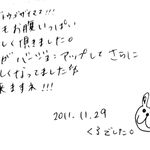 もお腹いっぱい
しく頂きました。
がバージョンアップしてさらに
しくなってました
来ますネ!!!
2011.11.29
くろでした。